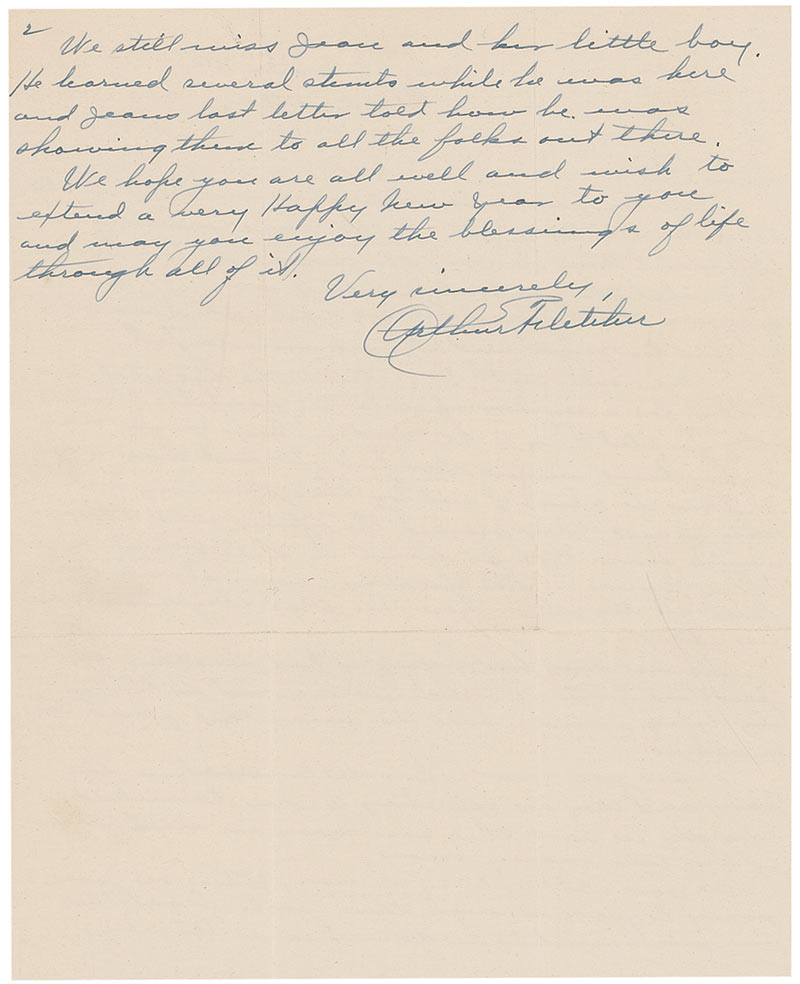 2
We still miss Jean and her little boy.
He learned several stunts while he was here
and Jeans last letter told how he was
showing them to all the folks out there.
We hope you are all well and wish to
extend a very Happy New Year to you
and may you enjoy the blessings of life
through all of it.
Very sincerely,
Arthur Fletcher